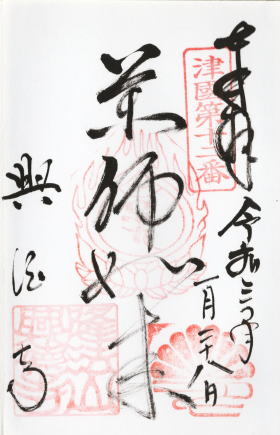 奉拝
津國第十二番
令和三年
一月二十八日
薬師如来
興徳寺